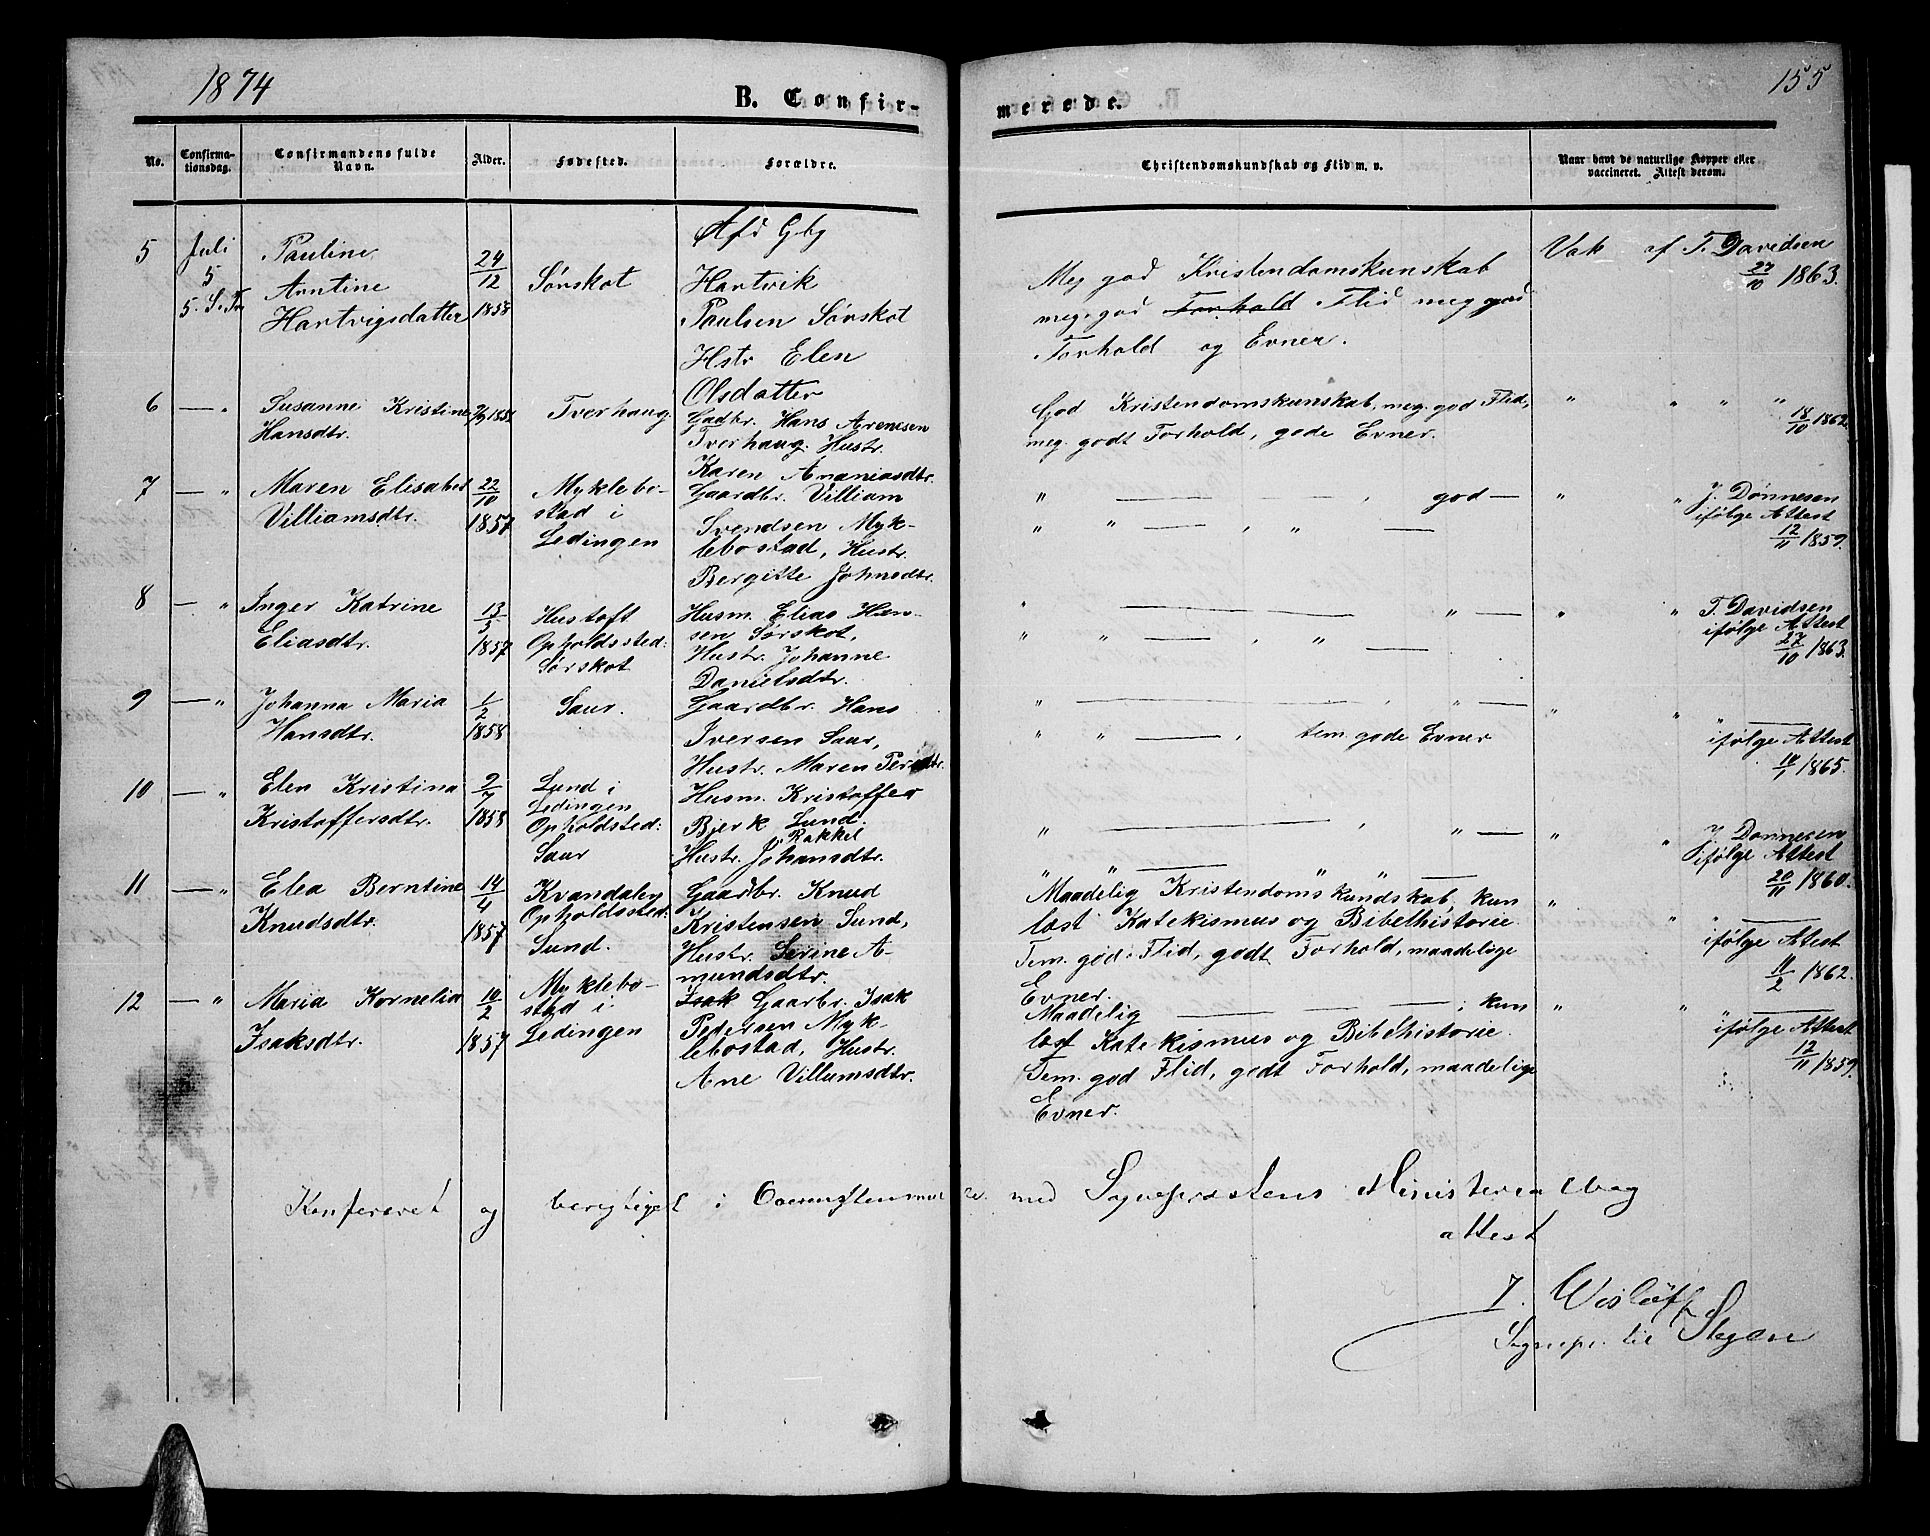 1874
B. Confir-
merede.
155
No.
Confirma-
tionsdag.
Confirmandens fulde
Navn.
Alder.
Fødested.
Forældre.
Christendomskundskab og Flid m. v.
Naar havt de naturlige Kopper eller
vaccineret. Attest derom.
5
Juli
5
5. S. Tr
Pauline
Arntine
Hartvigsdatter
24/12
1858
Sørskot
Afd Gbg
Hartvik
Paulsen Sørskot
Hstr Elen
Olsdatter
Meg god Kristendomskunskab
meg. god Forhold Flid meg god
Forhold og Evner.
Vak af T. Davidsen
27/10 1863.
6
— "
Susanne Kristine
Hansdtr.
Tverhaug.
Gadbr. Hans Arentsen
Tverhaug. Hustr.
Karen Ananiasdtr.
God Kristendomskunskab, meg. god Flid,
meg. godt Forhold, gode Evner.
" " " "
18/10 1862.
7
— "
Maren Elisabet
Villiamsdtr.
22/10
1857
Myklebo-
stad i
Lødingen
Gaardbr. Villiam
Svendsen Myk-
lebostad, Hustr.
Bergitte Johnsdtr.
" — — , god —
" " — , " —
" " J. Dønnesen
ifølge Attest
12/11 1859.
8
— "
Inger Katrine
Eliasdtr.
13/3
1857
Hustoft
Opholdssted:
Sørskot
Husm. Elias Han-
sen Sørskot,
Hustr. Johanne
Danielsdtr.
" — — " —
" " — , " —
" " T. Davidsen
ifølge Attest
27/10 1863.
9
— "
Johanna Maria
Hansdtr.
1/2
1858
Saur.
Gaardbr. Hans
Iversen Saur,
Hustr. Maren Persdtr.
" — — , " —
" " — , tem. gode Evner
" " " —
ifølge Attest
10/1 1865.
10
— "
Elen Kristina
Kristoffersdtr.
9/7
1858
Lund i
Lødingen
Opholdsted:
Saur
Husm. Kristoffer
Bjerk Lund.
Rakkel
Hustr. Johansdtr.
" — , " —
" " — " " —
" " J. Dønnesen
ifølge Attest
20/11 1860.
11
— "
Elea Berntine
Knudsdtr.
14/4
1857
Kvandalen
Opholdssted:
Sund.
Gaardbr. Knud
Kristensen Sund,
Hustr. Serine A-
mundsdtr.
Maadelig Kristendomskundskab, kun
læst Katekismus og Bibelhistorie.
Tem. god Flid, godt Forhold, maadelige
Evner.
" " " —
ifølge Attest
11/2 1862.
12
— "
Maria Kornelia
Isaksdtr.
10/2
1857
Myklebo-
stad i
Lødingen
Isak Gaarbr. Isak
Pedersen Myk-
lebostad, Hustr.
Ane Villumsdtr.
Maadelig — — ; kun
læst Katekismus og Bibelhistorie.
Tem. god Flid, godt Forhold, maadelige
Evner.
" " " —
ifølge Attest
12/11 1859.
Konfereret og berigtiget i Overensstemmelse med Sognepræstens Ministerialbog
attest
J. Wisløff
Sognepr. til Stegen